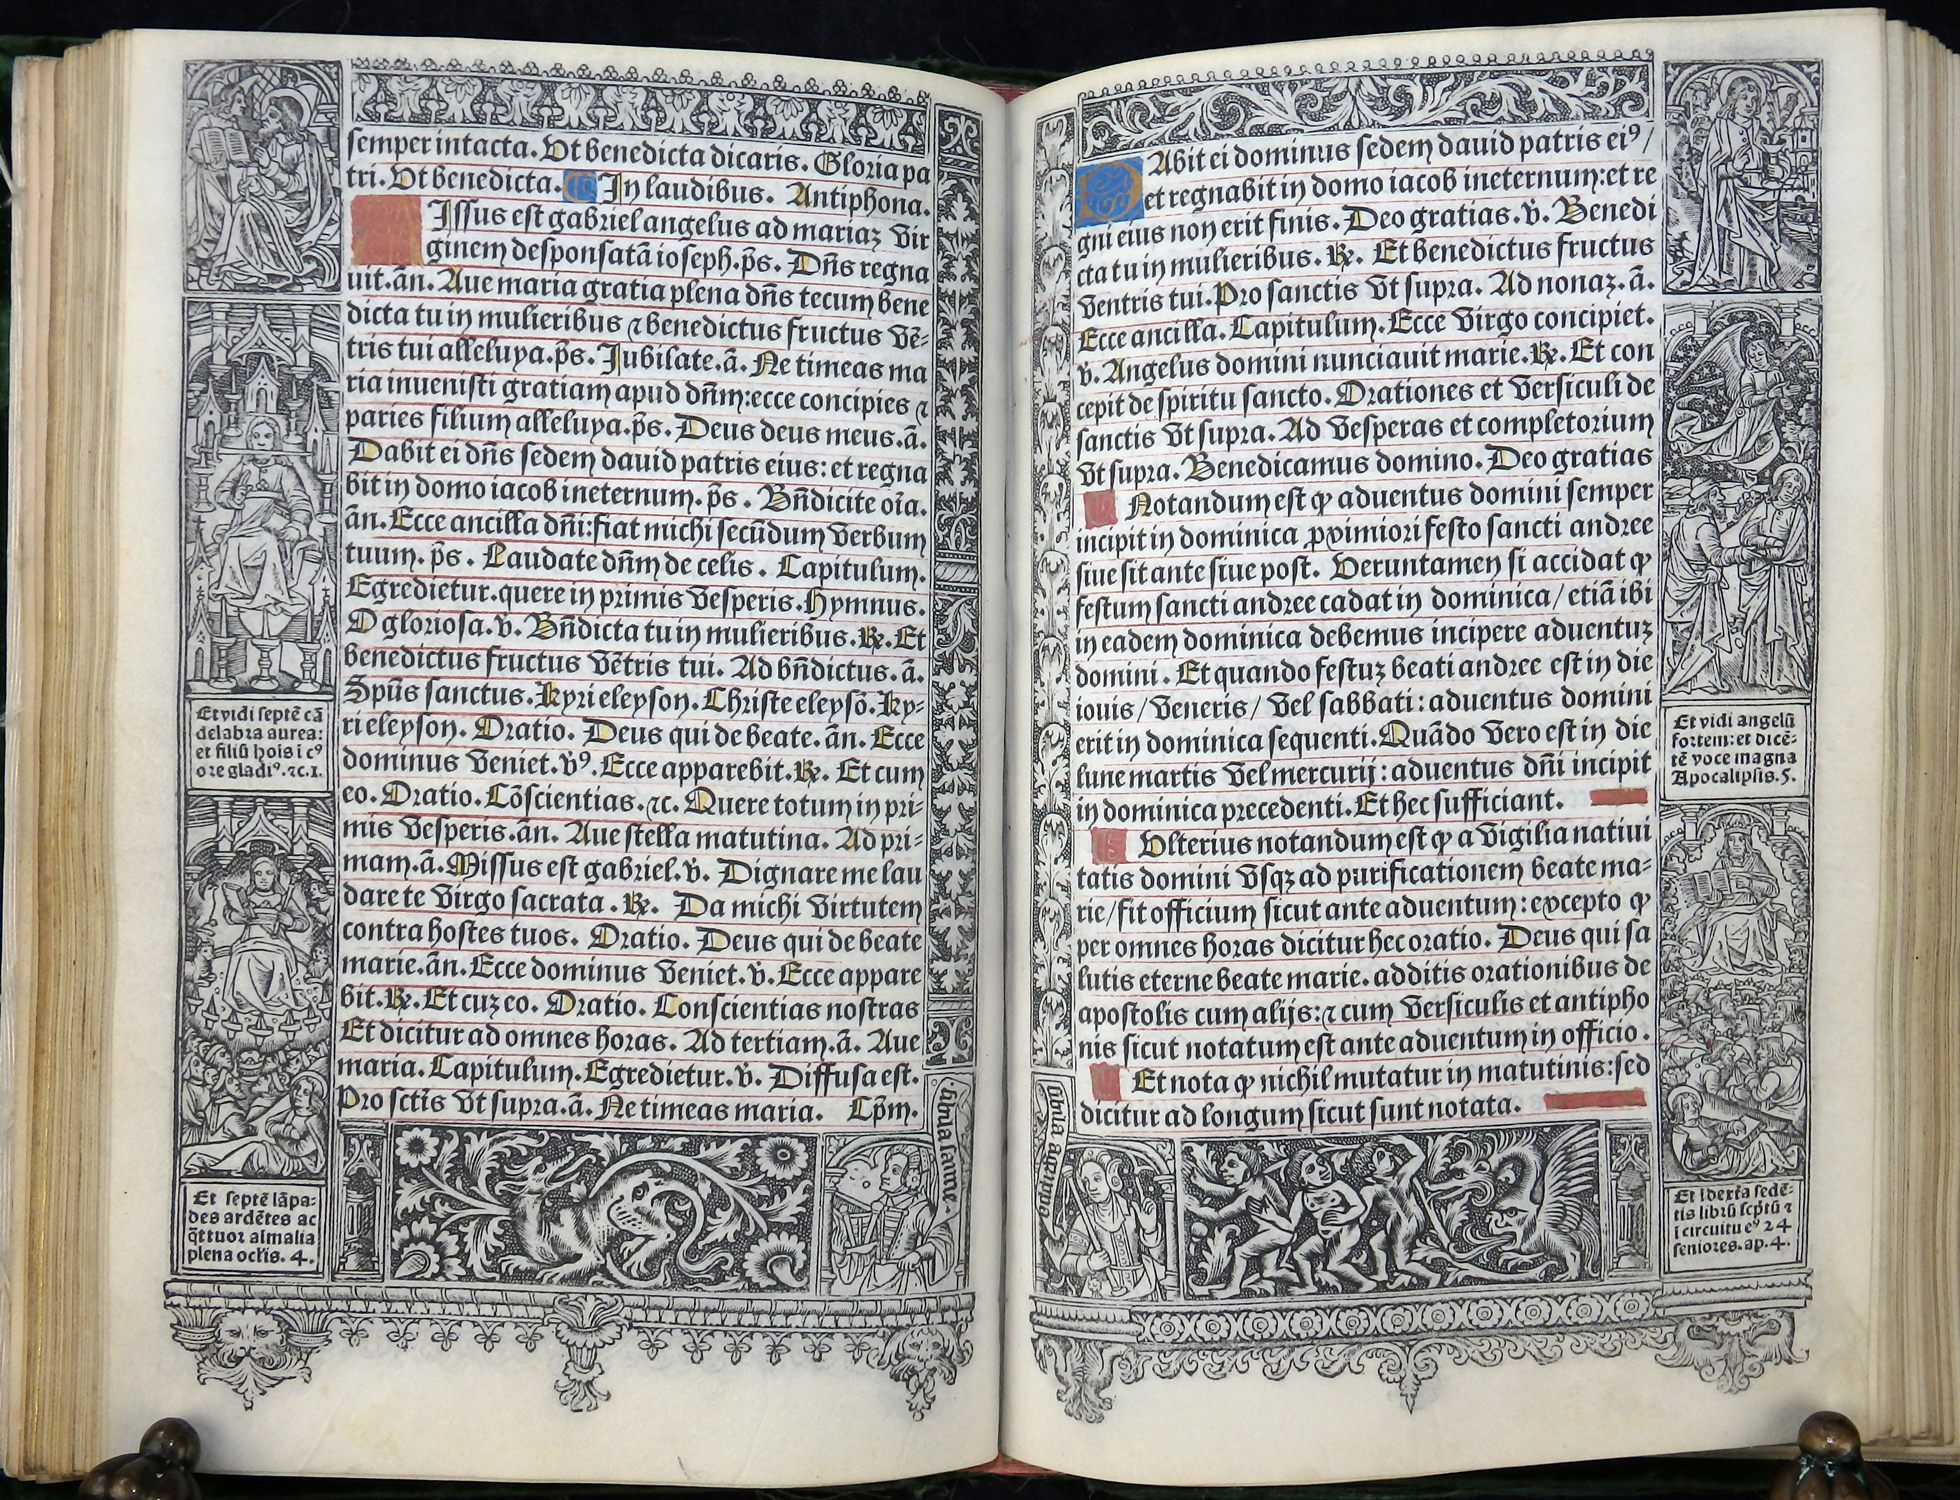 semper intacta. Ut benedicta dicaris. Gloria pa
tri. Ut benedicta. In laudibus. Antiphona.
Issus est gabriel angelus ad mariaz vir
ginem desponsatā ioseph. p̄s. Dn̄s regna
uit. an̄. Aue maria gratia plena dn̄s tecum bene
dicta tu in mulieribus ⁊ benedictus fructus vē-
tris tui alleluya. p̄s. Jubilate. ā. Ne timeas ma
ria inuenisti gratiam apud dn̄m: ecce concipies ⁊
paries filium alleluya. p̄s. Deus deus meus. ā.
Dabit ei dn̄s sedem dauid patris eius: et regna
bit in domo iacob ineternum. p̄s. Bn̄dicite oīa.
ān. Ecce ancilla dn̄i: fiat michi secūdum verbum
tuum. p̄s. Laudate dn̄m de celis. Capitulum.
Egredietur. quere in primis vesperis. Hymnus.
O gloriosa. v̄. Bn̄dicta tu in mulieribus. ℞. Et
benedictus fructus vētris tui. Ad bn̄dictus. ā.
Spūs sanctus. Kyrieleyson. Christe eleysō. Ky-
rieleyson. Oratio. Deus qui de beate. ān. Ecce
dominus veniet. v̄ꝰ. Ecce apparebit. ℞. Et cum
eo. Oratio. Cōscientias. ⁊c. Quere totum in pri-
mis vesperis. ān. Aue stella matutina. Ad pri-
mam. ā. Missus est gabriel. v̄. Dignare me lau
dare te virgo sacrata. ℞. Da michi virtutem
contra hostes tuos. Oratio. Deus qui de beate
marie. ān. Ecce dominus veniet. v̄. Ecce appare
bit. ℞. Et cuz eo. Oratio. Conscientias nostras
Et dicitur ad omnes horas. Ad tertiam. ā. Aue
maria. Capitulum. Egredietur. v̄. Diffusa est.
Pro sctīs vt supra. ā. Ne timeas maria. Cp̄m.
Et vidi septē cā
delabra aurea:
et filiū hoīs i cꝰ
ore gladiꝰ. ⁊c. 1.
Et septē lāpa-
des ardētes ac
q̄ttuor aīmalia
plena oc̄lis. 4.
Abit ei dominus sedem dauid patris eiꝰ/
et regnabit in domo iacob ineternum: et re
gni eius non erit finis. Deo gratias. v̄. Benedi
cta tu in mulieribus. ℞. Et benedictus fructus
ventris tui. Pro sanctis vt supra. Ad nonaz. ā.
Ecce ancilla. Capitulum. Ecce virgo concipiet.
v̄. Angelus domini nunciauit marie. ℞. Et con
cepit de spiritu sancto. Orationes et versiculi de
sanctis vt supra. Ad vesperas et completorium
vt supra. Benedicamus domino. Deo gratias
Notandum est ꝙ aduentus domini semper
incipit in dominica ꝓximiori festo sancti andree
siue sit ante siue post. Veruntamen si accidat ꝙ
festum sancti andree cadat in dominica/ etiā ibi
in eadem dominica debemus incipere aduentuz
domini. Et quando festuz beati andree est in die
iouis/ veneris/ vel sabbati: aduentus domini
erit in dominica sequenti. Quādo vero est in die
lune martis vel mercurij: aduentus dn̄i incipit
in dominica precedenti. Et hec sufficiant.
Ulterius notandum est ꝙ a vigilia natiui
tatis domini vsqz ad purificationem beate ma-
rie/ fit officium sicut ante aduentum: excepto ꝙ
per omnes horas dicitur hec oratio. Deus qui sa
lutis eterne beate marie. additis orationibus de
apostolis cum alijs: ⁊ cum versiculis et antipho
nis sicut notatum est ante aduentum in officio.
Et nota ꝙ nichil mutatur in matutinis: sed
dicitur ad longum sicut sunt notata.
Et vidi angelū
fortem: et dicē-
tē voce magna
Apocalipsis. 5.
Et dextra sedē-
tis librū scptū ⁊
i circuitu eꝰ 24
seniores. ap. 4.
sibila agripa